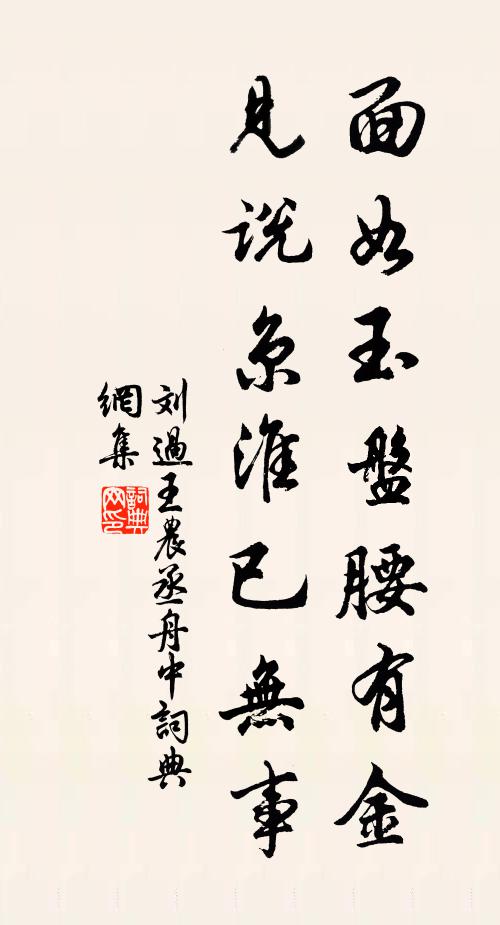 面如玉盤腰有金
見說京淮已無事
刘過王農丞舟中詞典
網集
詞典
网印